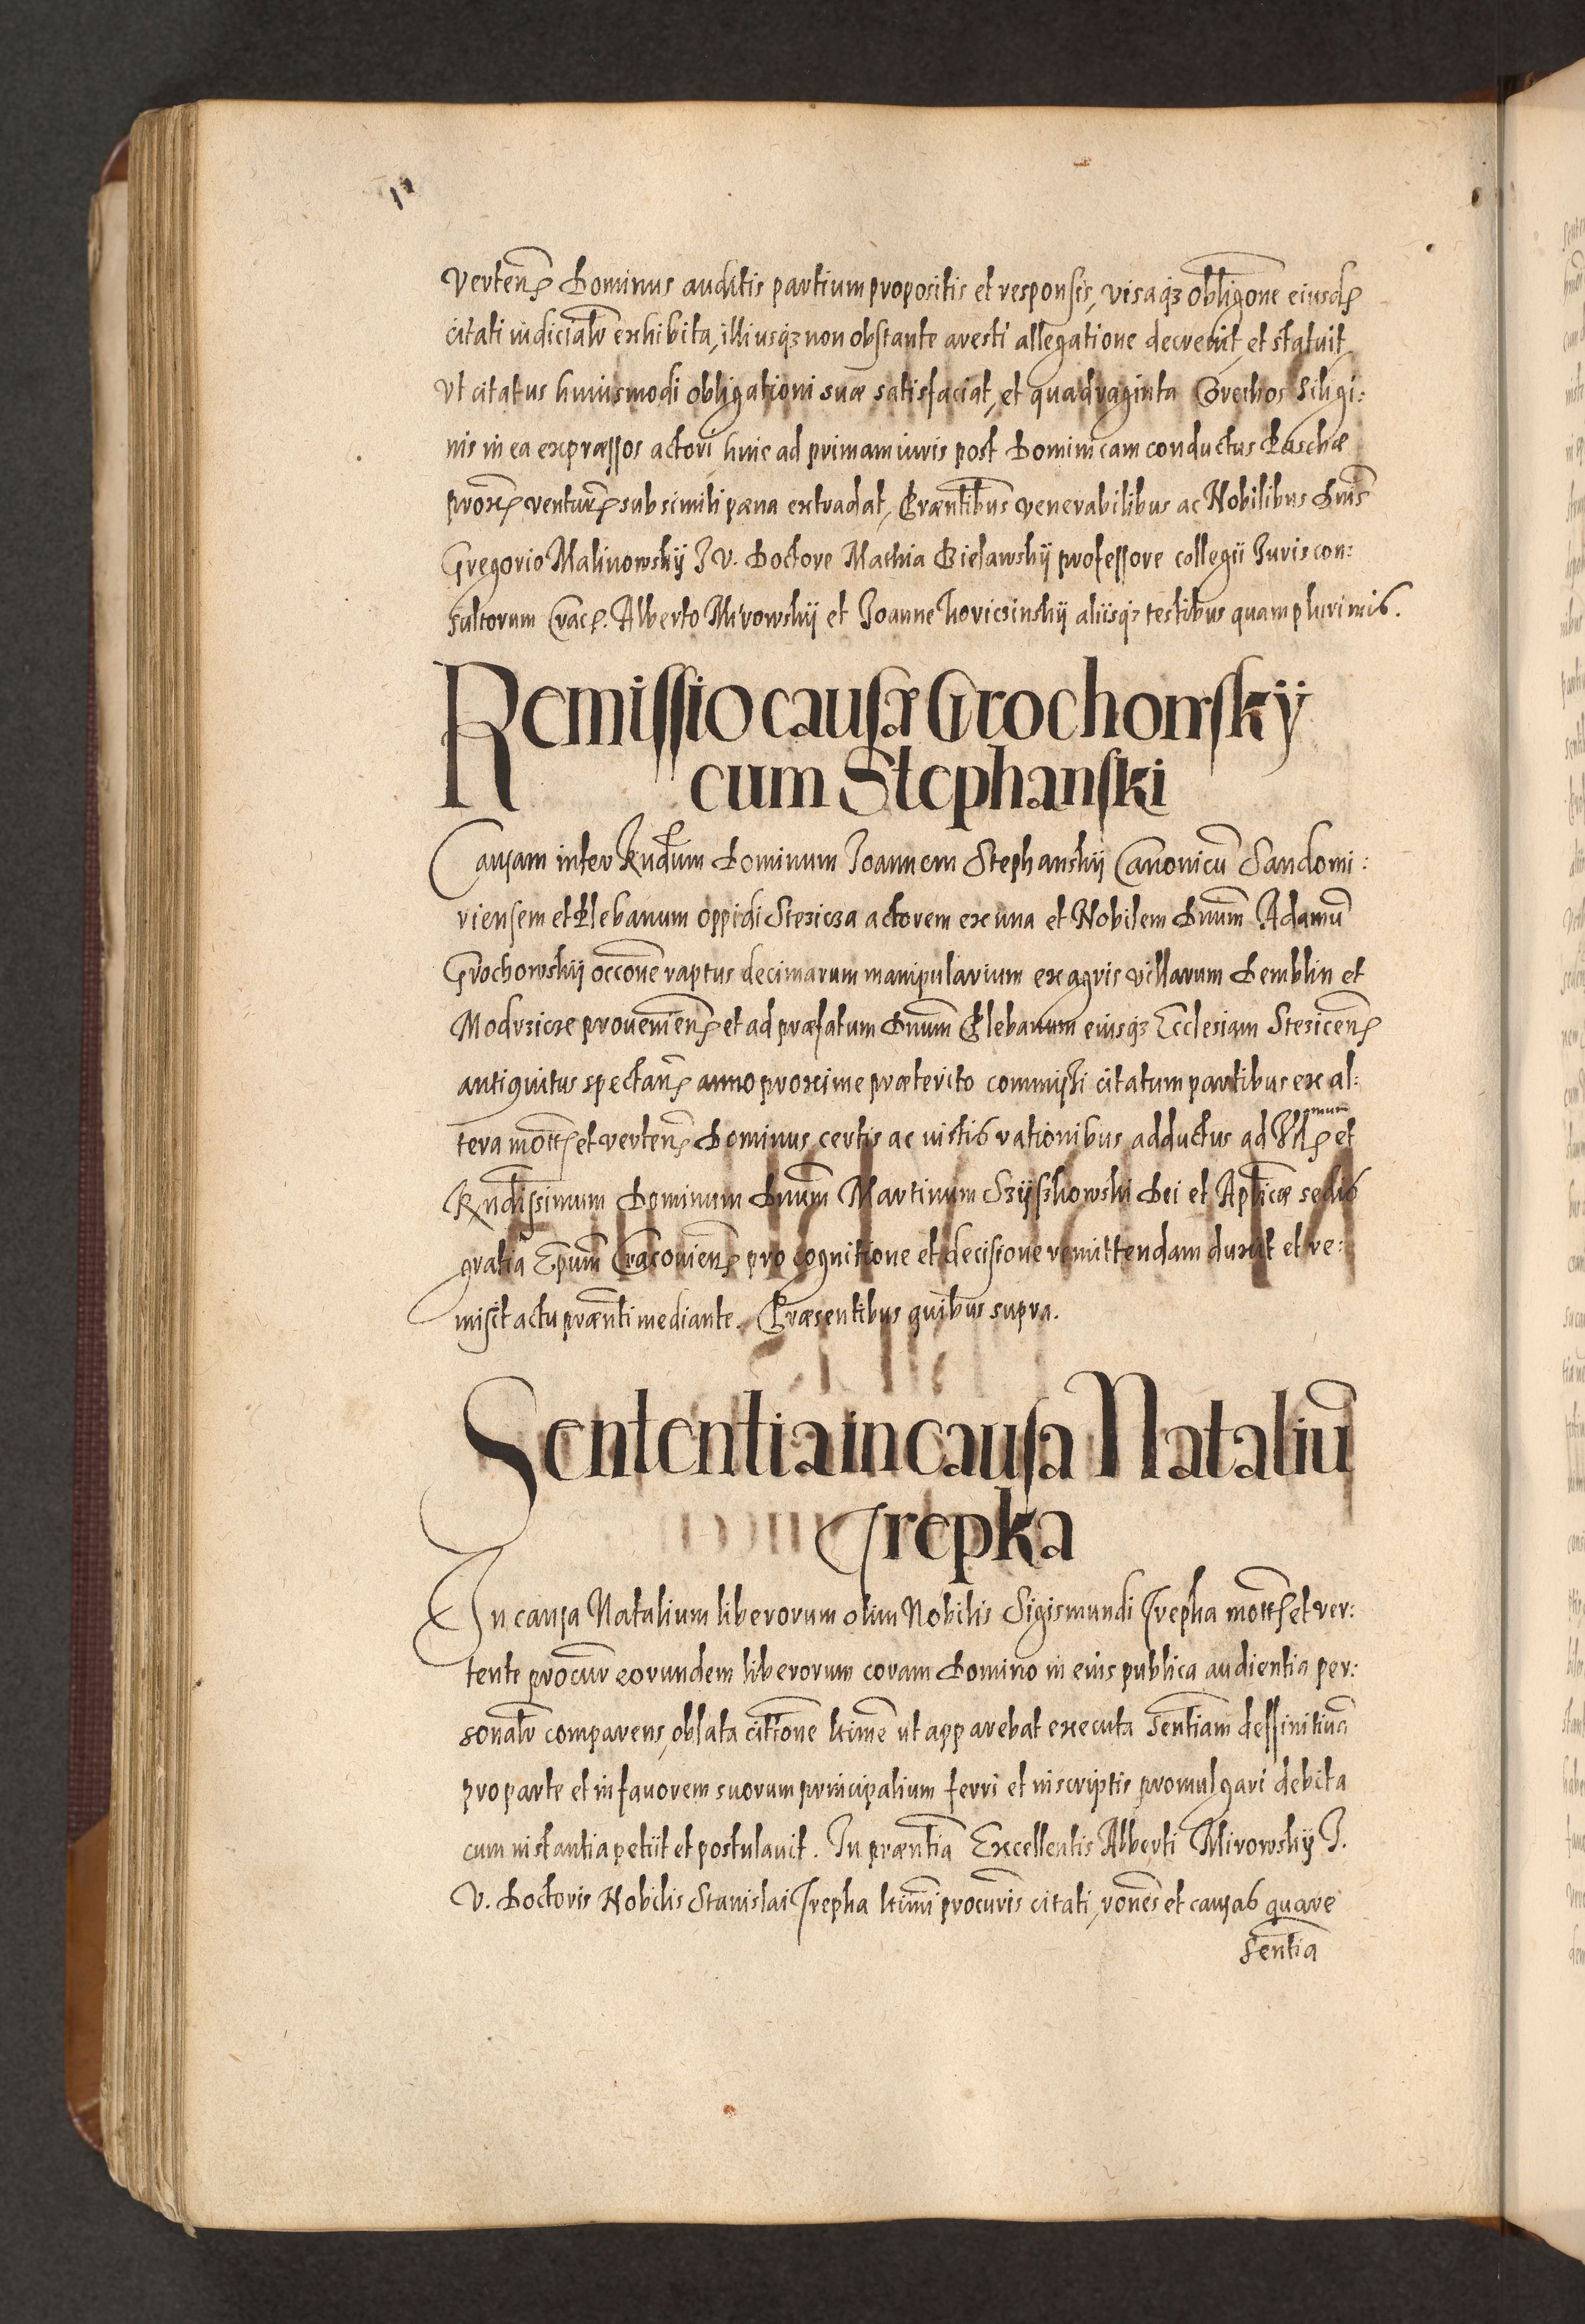 Verten̄ Dominus auditis partium propositis et responsis, visaq3 obligōne eiusd
citati iudicialr̄ exhibita, illiusq3 non obstante aresti allegatione decrevit, et statuit
Vt citatus huiusmodi obligationi suæ satisfaciat, et quadraginta Corethos Siligi:
nis in ea expræssos actori huic ad primam iuris post Dominicam conductus Paschæ
prox ventur sub simili pæna extradat, Præntibus venerabilibus ac Nobilibus Dnis
Gregorio Malinowskÿ J V. Doctore Mathia Bielawskÿ professore collegii Juris con:
sultorum Crac. Alberto Mirowskÿ et Joanne Joviczinskÿ aliisq3 testibus quam plurimis.
Remissio causæ Grochowskÿ
cum Stephanski
Causam inter Rndum Dominum Joannem Stephanskÿ Canonicū Sandomi:
riensem et Plebanum oppidi Stezicza actorem ex una et Nobilem Dnum Adamū
Grochowskÿ occōne raptus decimarum manipularium ex agris villarum Demblin et
Modrzicze provenien̄ et ad præfatum Dnum Plebanum eiusq3 Ecclesiam Stezicen̄
antiquitus spectan̄ anno proxime præterito commissi citatum partibus ex al:
tera mott et verten̄ Dominus certis ac iustis rationibus adductus ad Ill mum et
Rndissimum Dominum Dnum Martinum Szÿszkowski Dei et Aplicæ sedis
gratia Epum Cracovien̄ pro cognitione et decisione remittendam duxit et re:
misit actu prænti mediante. Præsentibus quibus supra.
Sententia in causa Nataliū
Trepka
In causa Natalium liberorum olim Nobilis Sigismundi Trepka mott et ver:
tente procur eorundem liberorum coram Domino in eius publica audientia per:
sonalr̄ comparens, oblata citōne ltime ut apparebat executa Sentiam deffinitivā
pro parte et in favorem suorum principalium ferri et in scriptis promulgari debita
cum instantia petiit et postulavit. In præntia Excellentis Alberti Mirowskÿ J.
V. Doctoris Nobilis Stanislai Trepka ltimi procuris citati, rones et causas quare
Sentia